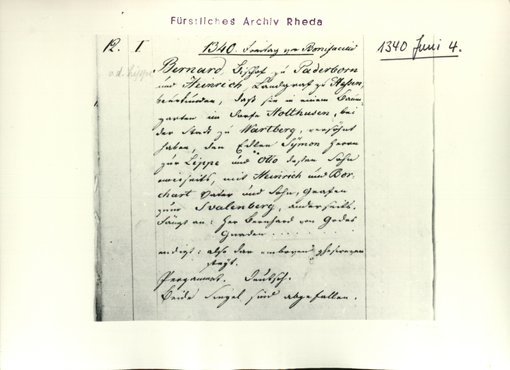 Fürstliches Archiv Rheda
12. I 1340. Sonntag vor Bonifacius
1340 Juni 4.
v.d. Lippe
Bernard, Bischof zu Paderborn
und Heinrich, Landgraf zu Hessen,
beurkunden, daß sie in einem Baum-
garten im Dorfe Holthusen, bei
der Stadt zu Wartberg, versöhnt
haben, den Edlen Symon Herrn
zur Lippe und Otto dessen Sohn
einerseits mit Heinrich und Bor-
chart Vater und Sohn, Grafen
zum Svalenberg, anderseits.
Fängt an: Her Bernhard von Godes
Gnaden . . . . .
endigt: also dar
steyt.
Pergament. Deutsch.
Beide Siegel sind abgefallen.